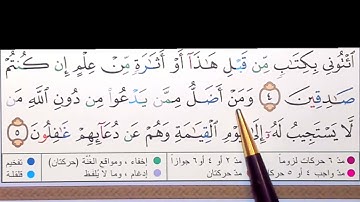 ٱئۡتُونِي بِكِتَٰبٖ مِّن قَبۡلِ هَٰذَآ أَوۡ أَثَٰرَةٖ مِّنۡ عِلۡمٍ إِن كُنتُمۡ
صَٰدِقِينَ ٤ وَمَنۡ أَضَلُّ مِمَّن يَدۡعُواْ مِن دُونِ ٱللَّهِ مَن
لَّا يَسۡتَجِيبُ لَهُۥٓ إِلَىٰ يَوۡمِ ٱلۡقِيَٰمَةِ وَهُمۡ عَن دُعَآئِهِمۡ غَٰفِلُونَ ٥
مدّ ٦ حركات لزوماً مدّ ٢ أو ٤ أو ٦ جوازاً إخفاء، ومواقع الغُنَّة (حركتان) تفخيم
مدّ واجب ٤ أو ٥ حركات مدّ حركتان إدغام، وما لا يُلفظ قلقلة